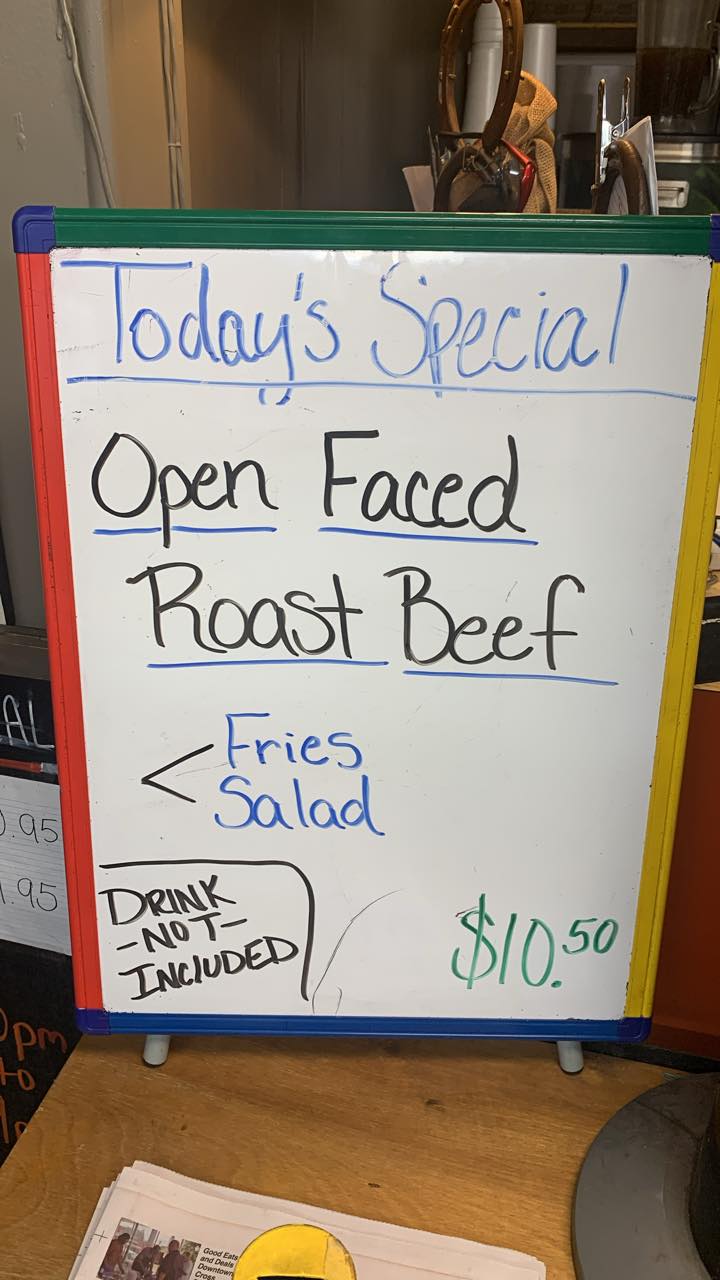 Today's Special
Open Faced
Roast Beef
< Fries
Salad
DRINK
-NOT-
INCLUDED
$10.50
AL
.95
.95
pm
to
Good Eats
and Deals
Downtown
Cross